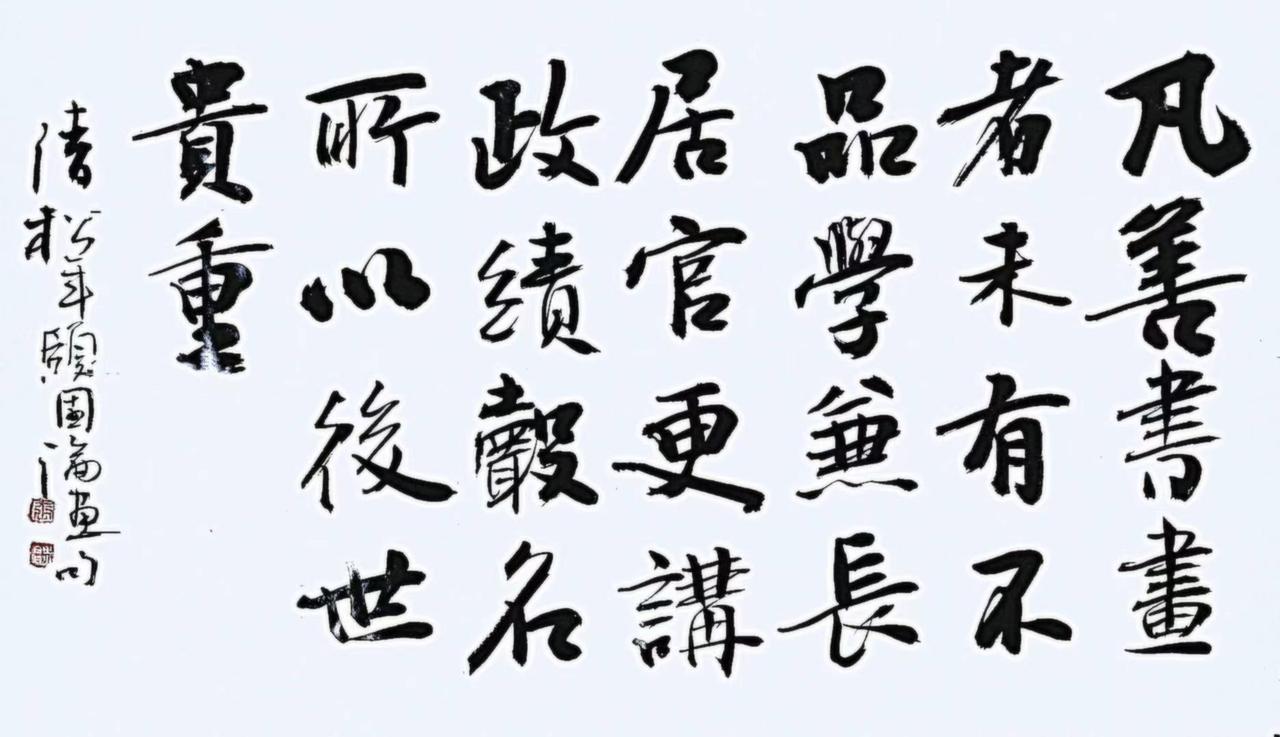 凡善書畫
者未有不
品學兼長
居官更講
政績聲名
所以後世
貴重
清松年頤園論畫句